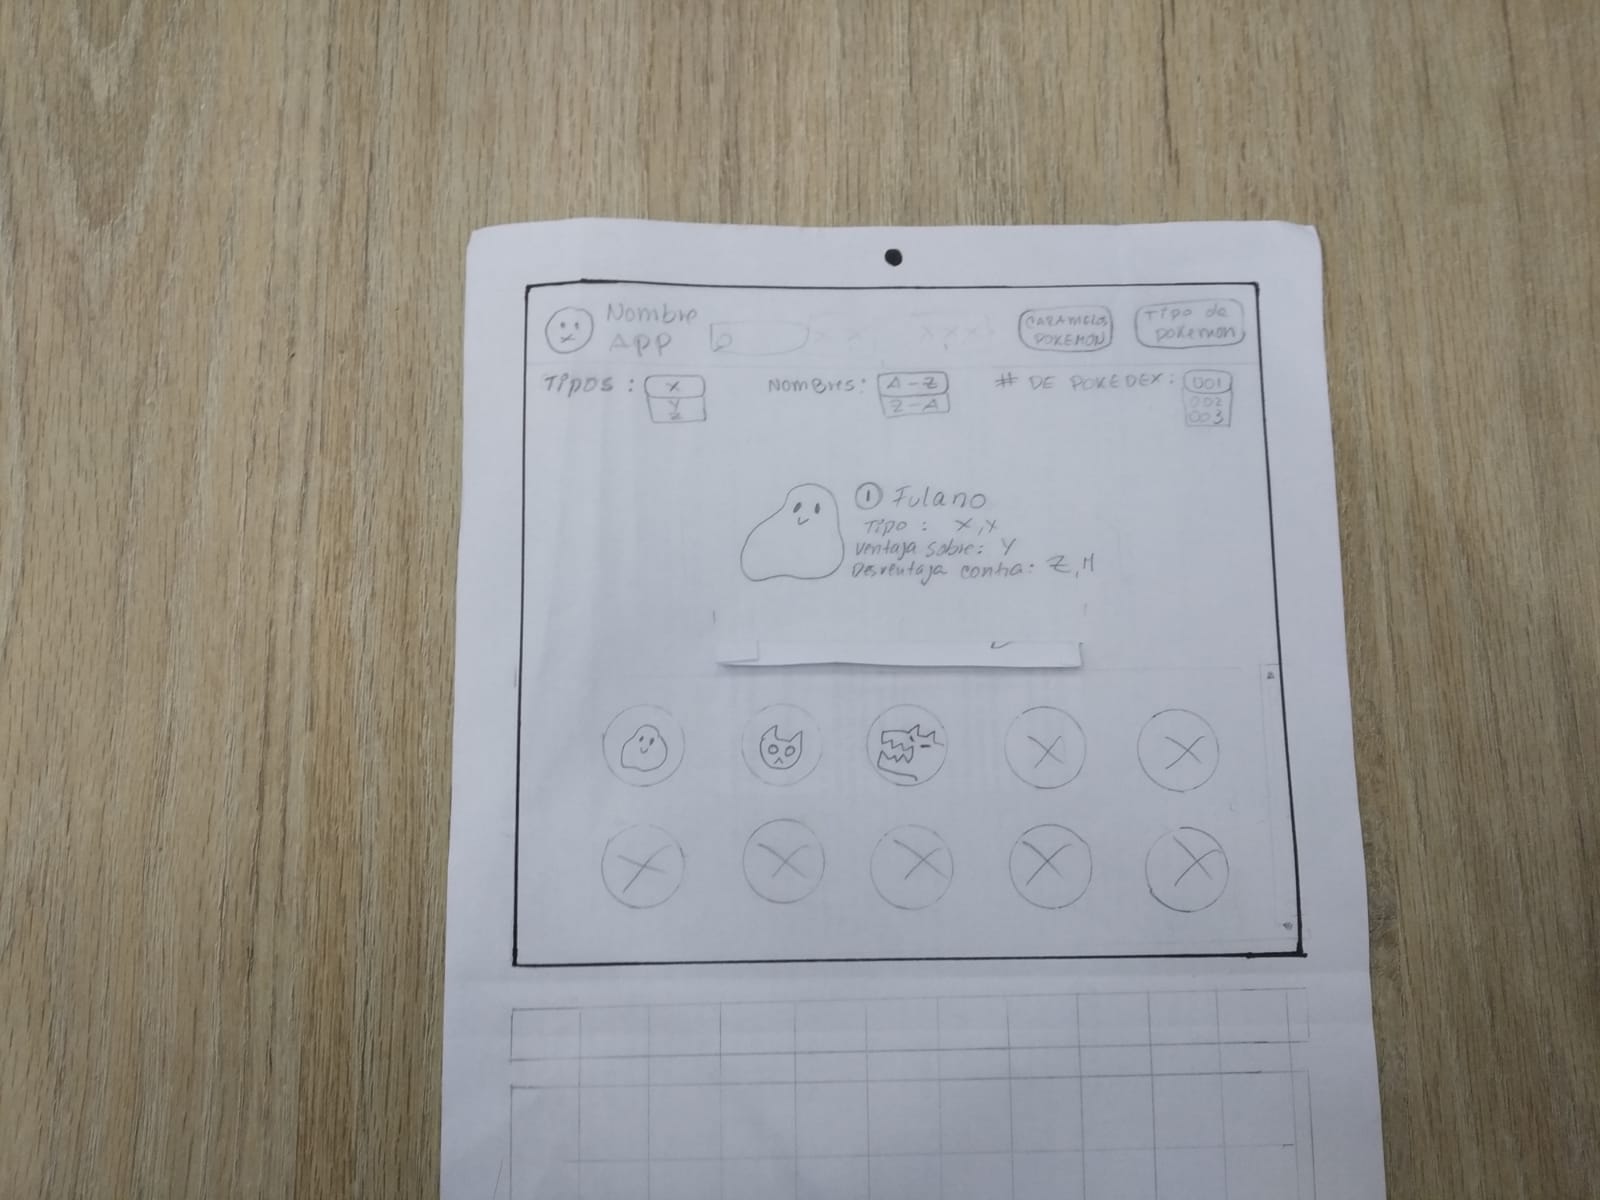 Nombre
App
CARAMELOS
POKEMON
Tipo de
pokemon
TIPOS : X
Y
Z
NOMBRES: A-Z
Z-A
# DE POKEDEX: 001
002
003
1 Fulano
Tipo : X,Y
Ventaja sobre: Y
Desventaja contra: Z,M